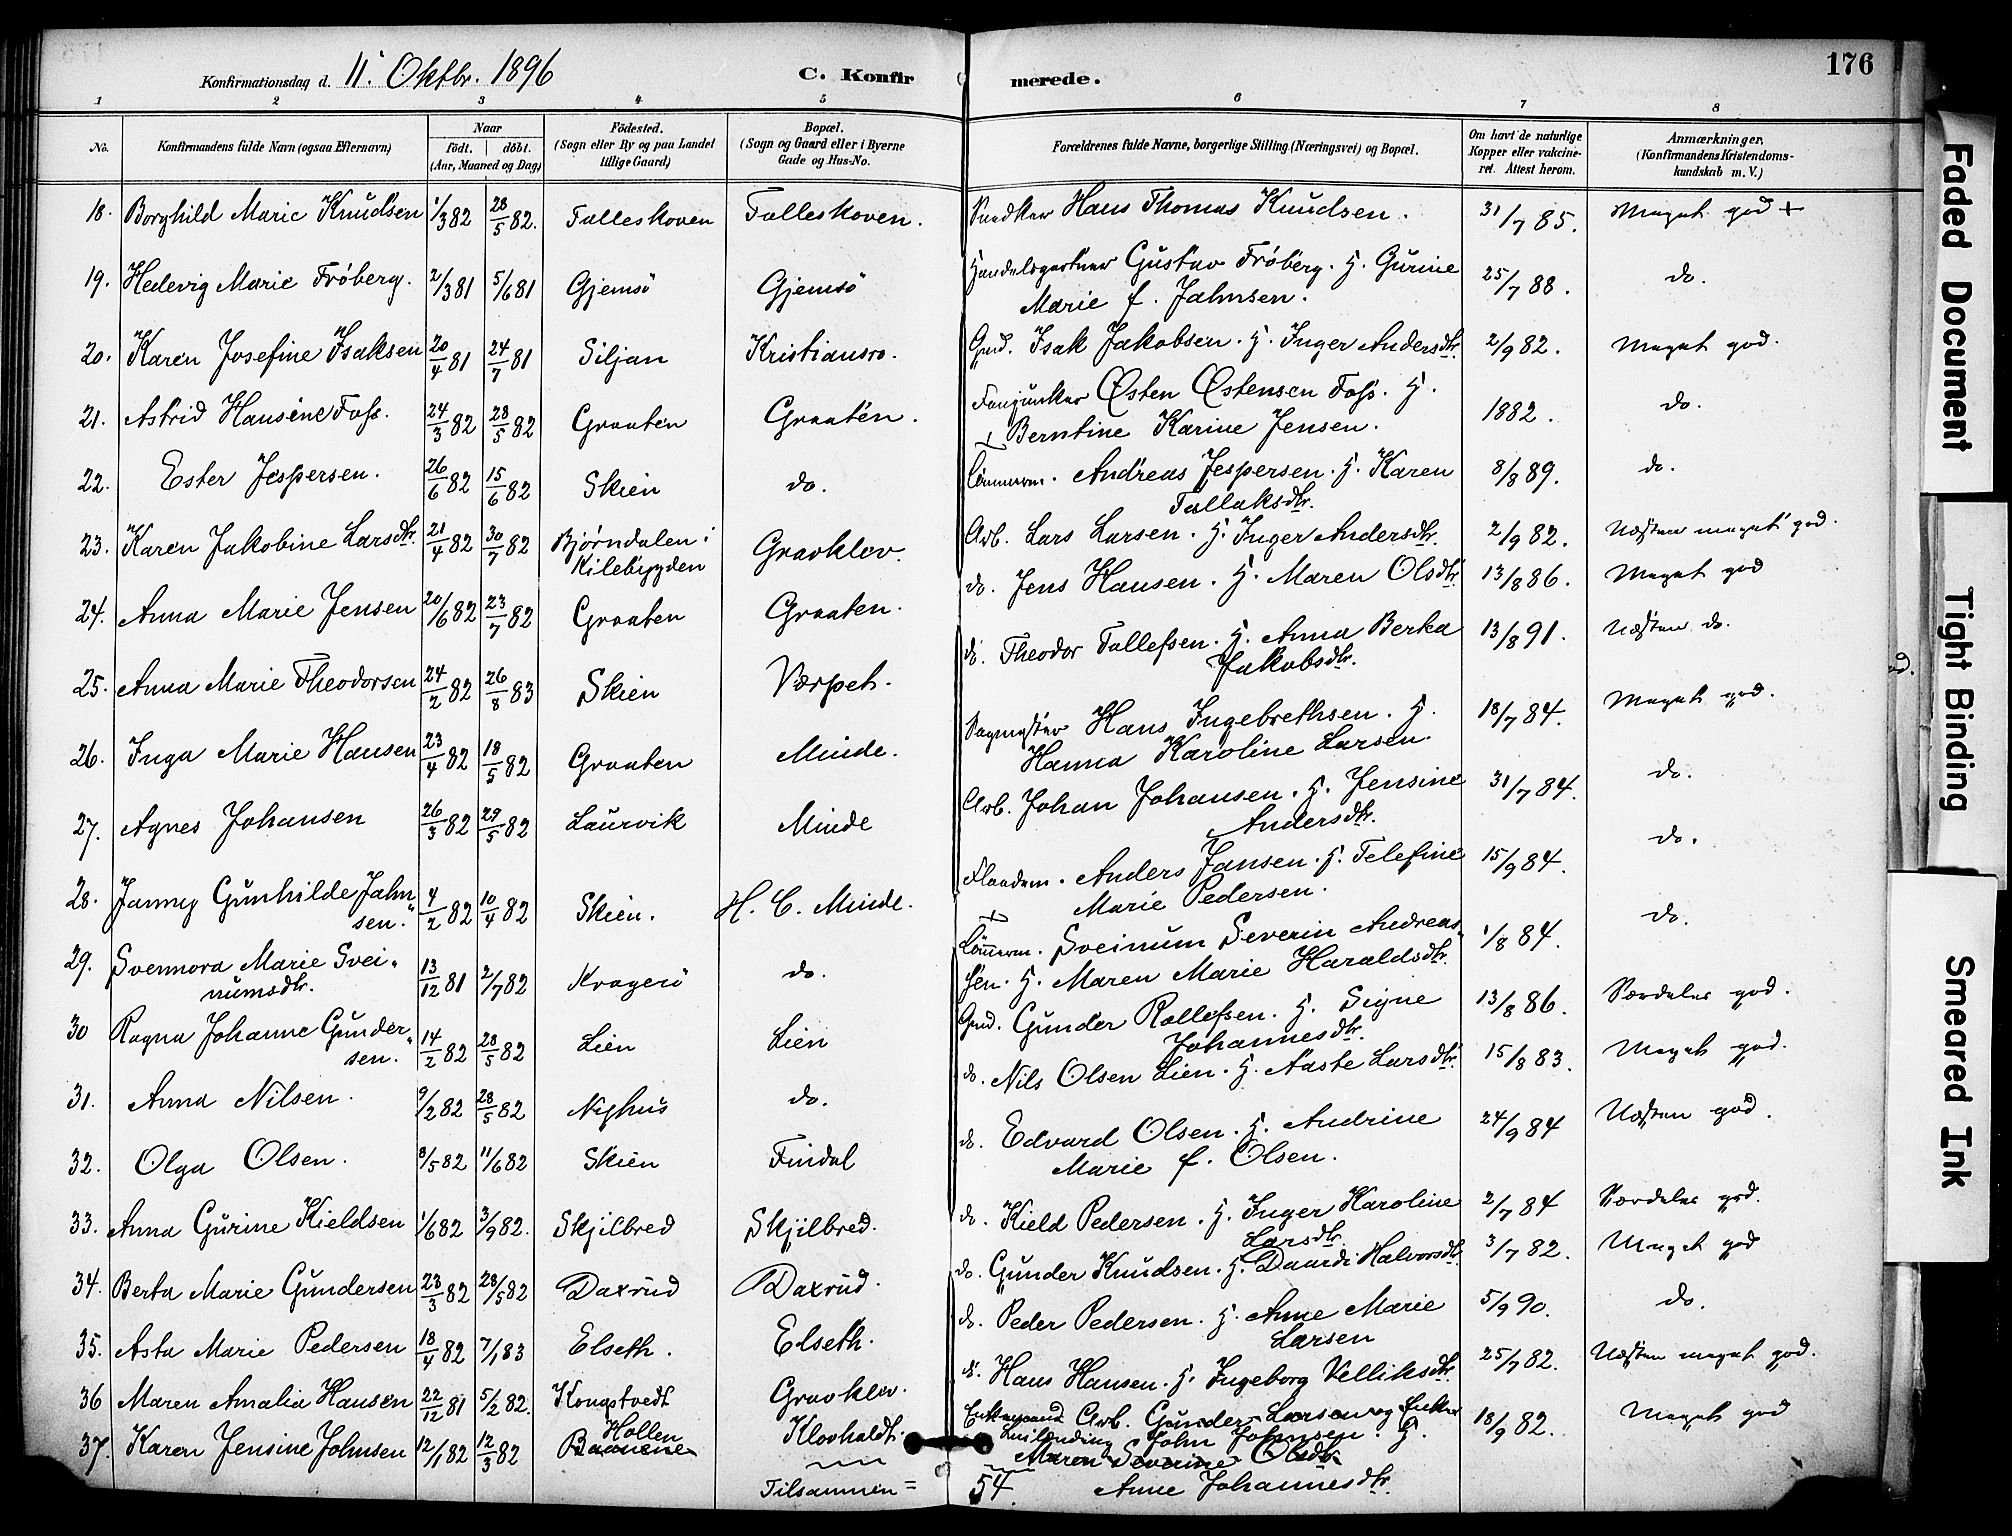 Konfirmationsdag d. 11' Oktbr. 1896
C. Konfirmerede.
176
1 2 3 4 5 6 7 8
No.
Konfirmandens fulde Navn (ogsaa Efternavn)
Naar
födt. | döbt.
(Aar, Maaned og Dag)
Födested.
(Sogn eller By og paa Landet
tillige Gaard)
Bopæl.
(Sogn og Gaard eller i Byerne
Gade og Hus-No.
Forældrenes fulde Navne, borgerlige Stilling (Næringsvei) og Bopæl.
Om havt de naturlige
Kopper eller vakcine-
ret. Attest herom.
Anmærkninger,
(Konfirmandens Kristendoms-
kundskab m. V.)
18. Borghild Marie Knudsen 1/3 82 28/5 82. Falleskoven Falleskoven. Snedker Hans Thomas Knudsen. 31/7 85. Meget god +
19. Hedevig Marie Fröberg. 2/3 81 5/6 81 Gjemsö Gjemsö Handelsgartner Gustav Fröberg. H. Gurine
Marie f. Jahnsen. 25/7 88. do.
20. Karen Josefine Isaksen 20/4 81 24/7 81 Siljan Kristiansro. Gmd. Isak Jakobsen. H. Inger Andersdtr. 2/9 82. Meget god.
21. Astrid Hansine Foss. 24/3 82 28/5 82 Graaten Graaten. Fanejunker Østen Østensen Foss. H.
+ Berntine Karine Jensen. 1882. do.
22. Ester Jespersen. 26/6 82 15/6 82 Skien do. Tömmerm. Andreas Jespersen. H. Karen
Tallaksdtr. 8/8 89. do.
23. Karen Jakobine Larsdtr. 21/4 82 30/7 82 Bjørndalen i
Kilebygden Gravklev. Arb. Lars Larsen. H. Inger Andersdtr. 2/9 82. Næsten meget god.
24. Anna Marie Jensen 20/6 82 23/7 82 Graaten Graaten. do. Jens Hansen. H. Maren Olsdtr. 13/8 86. Meget god
25. Anna Marie Theodorsen 24/2 82 26/8 83 Skien Værpet. do. Theodor Tallefsen. H. Anna Berta
Jakobsdtr. 13/8 91. Næsten do.
26. Inga Marie Hansen 23/4 82 18/5 82 Graaten Minde. Sagmester Hans Ingebrethsen. H.
Hanna Karoline Larsen. 18/7 84. Meget god.
27. Agnes Johansen 26/3 82 29/5 82 Laurvik Minde Arb. Johan Johansen. H. Jensine
Andersdtr. 31/7 84. do.
28. Janny Gunhilde Jahn-
sen. 4/2 82 10/4 82 Skien. H. C. Minde. Flaadem. Anders Jansen. H. Telefine
Marie Pedersen. 15/9 84. do.
29. Svennora Marie Svei-
numsdtr. 13/12 81 2/7 82 Kragerö do. + Tömmerm. Sveinum Severin Andreas-
sen. H. Maren Marie Haraldsdtr. 1/8 84. do.
30 Ragna Johanne Gunder-
sen. 14/2 82 28/5 82 Lien Lien Gmd. Gunder Rollefsen. H. Signe
Johannesdtr. 13/8 86. Særdeles god.
31. Anna Nilsen. 9/2 82 28/5 82 Nyhus do. do. Nils Olsen Lien. H. Aaste Larsdtr. 15/8 83. Meget god.
32. Olga Olsen. 8/5 82 11/6 82 Skien Findal do. Edvard Olsen. H. Andrine
Marie f. Olsen. 24/9 84 Næsten god.
33. Anna Gurine Kieldsen 1/6 82 3/9 82. Skjilbred Skjilbred. do. Kield Pedersen. H. Inger Karoline
Larsdtr. 2/7 84 Særdeles god.
34. Berta Marie Gundersen 23/3 82 28/5 82 Daxrud Daxrud. do. Gunder Knudsen. H. Daardi Halvorsdtr. 3/7 82. Meget god
35. Asta Marie Pedersen 18/4 82 7/1 83 Elseth. Elseth. do. Peder Pedersen. H. Anne Marie
Larsen 5/9 90. do.
36 Maren Amalia Hansen 22/12 81 5/2 82. Kongstvedt Gravklev. do. Hans Hansen. H. Ingeborg Velliksdtr. 25/7 82. Næsten meget god.
37. Karen Jensine Johnsen 12/1 82 12/3 82 Hollen
Baanene Klovholdt. Enkemand Arb. Gunder Larsen og Enke
John Johnsen. H.
Maren Severine Olsdtr.
Anne Johannesdtr. 18/9 82. Meget god
Tilsammen = 54.
Faded Document
Tight Binding
Smeared Ink